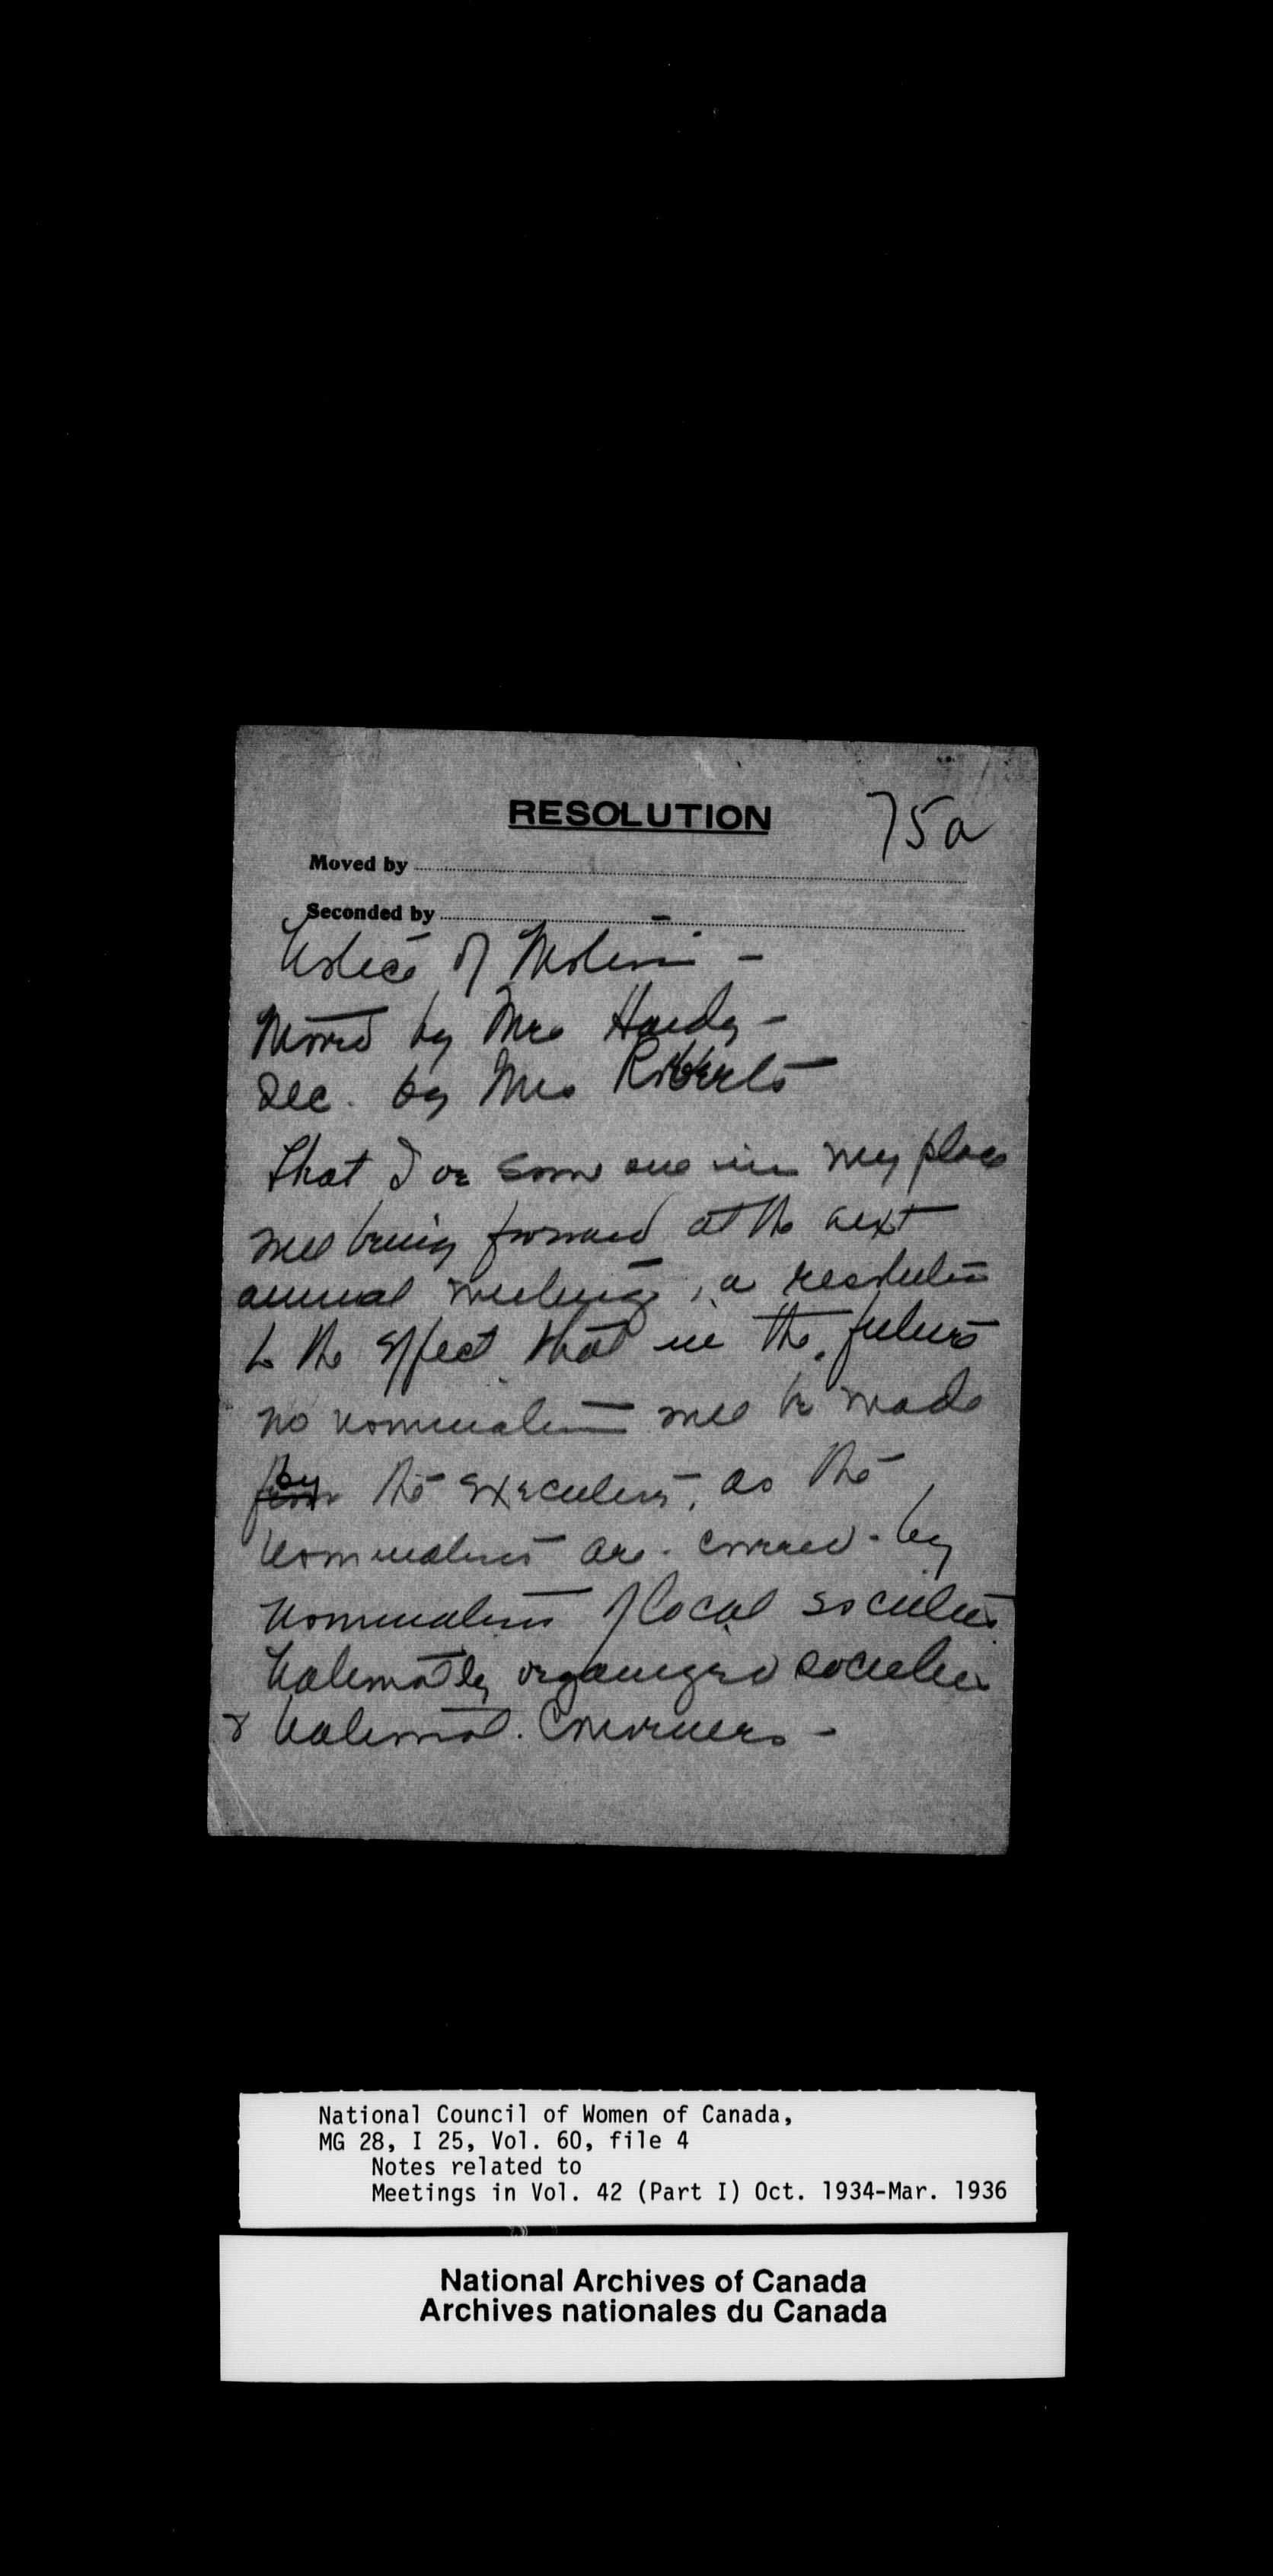 RESOLUTION
75a
Moved by
Seconded by
Notice of Motion -
Moved by Mrs Hardy -
Sec. by Mrs Roberts
that I or some one in my place
will bring forward at the next
annual meeting, a resolution
to the effect that in the future
no nomination will be made
from by the executive, as the
nominations are covered by
nominations of local societies
nationally organized societies
& National Conveners -
National Council of Women of Canada,
MG 28, I 25, Vol. 60, file 4
Notes related to
Meetings in Vol. 42 (Part I) Oct. 1934-Mar. 1936
National Archives of Canada
Archives nationales du Canada